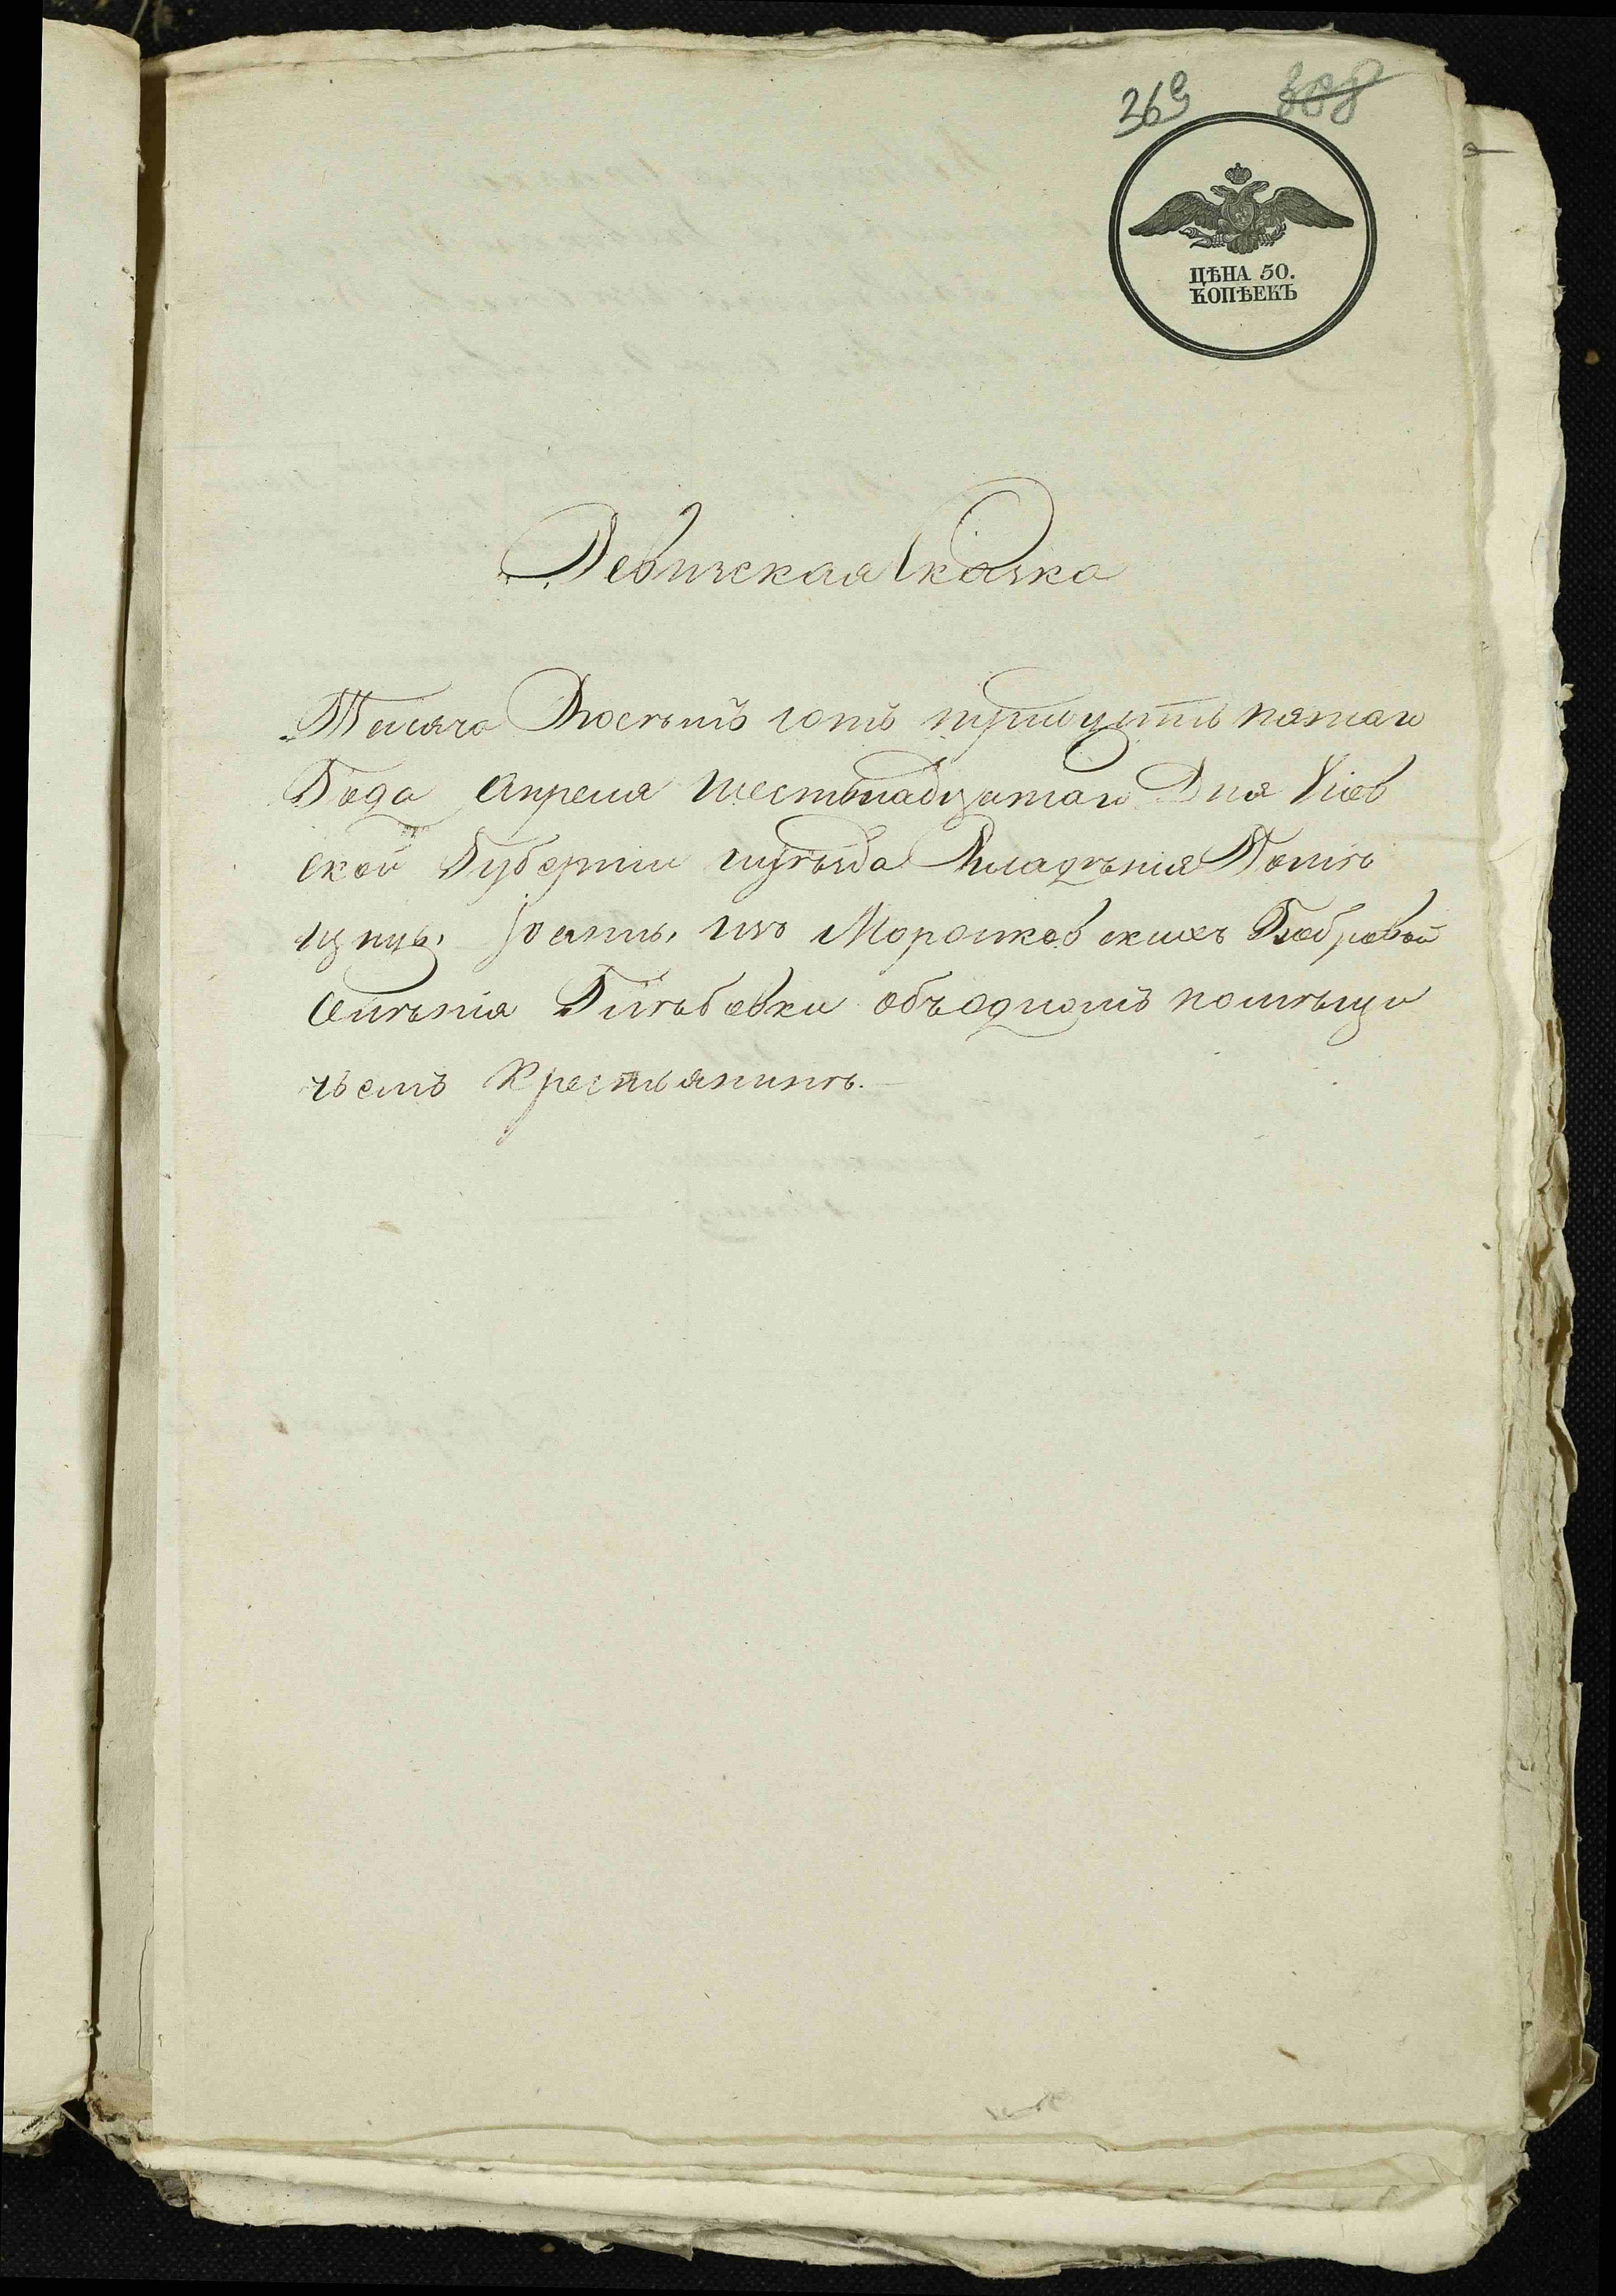 369 388
ЦѢНА 50.
КОПѢЕКЪ
Ревижская Сказка
Тысяча Восѣмъ сотъ тритцать пятаго
Года Апреля шестьнадцатаго Дня Кіев
ской Губерніи уѣзда Владѣнія Помѣ
щицы, Іоанны, изъ Морошковскихъ Бобровой
Имѣнія об одномъ помѣщи
чьемъ Крестьянинѣ.